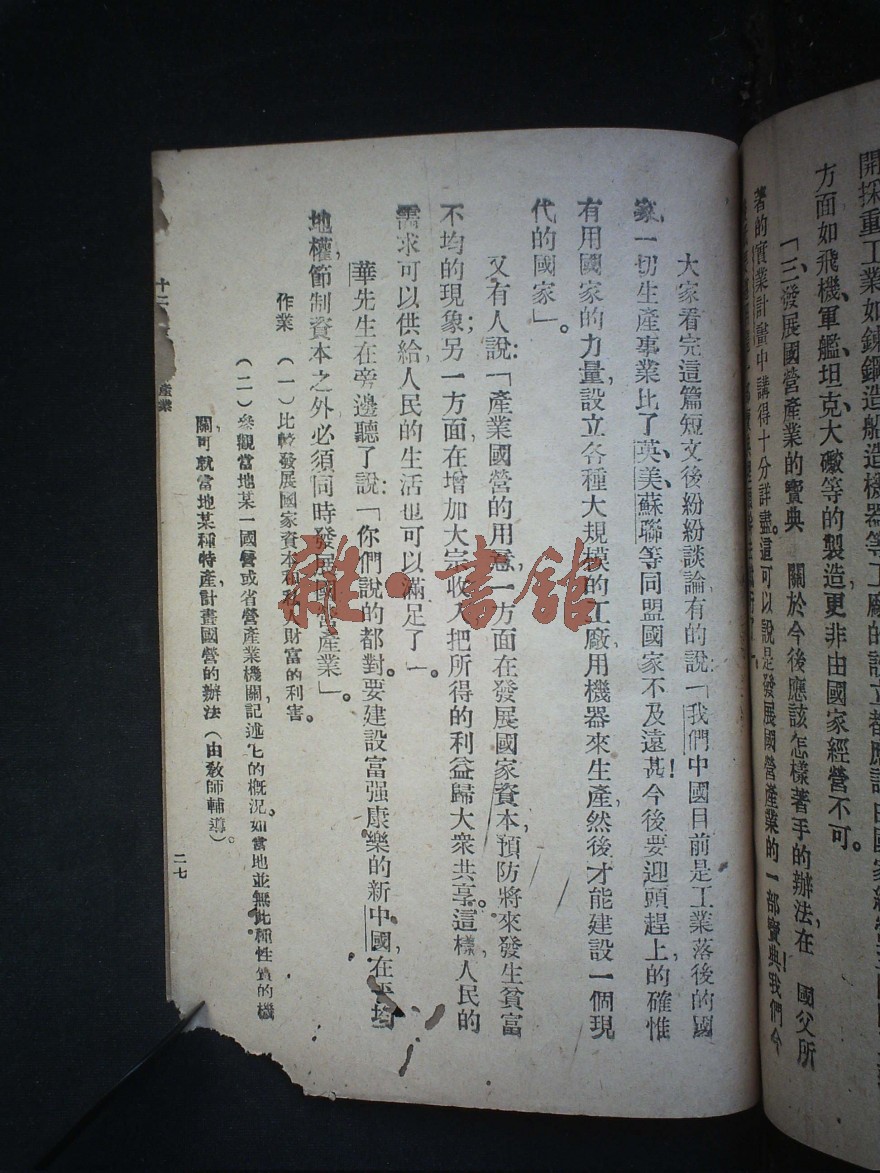 開採重工業如鍊鋼造船造機器等工廠的設立都應該由國家經營
方面如飛機、軍艦、坦克、大礮等的製造，更非由國家經營不可。
「三、發展國營產業的寶典　關於今後應該怎樣著手的辦法，在　國父所
著的實業計畫中講得十分詳盡。這可以說是發展國營產業的一部寶典！我們今
大家看完這篇短文後紛紛談論，有的說：「我們中國目前是工業落後的國
家，一切生產事業比了英、美、蘇聯等同盟國家不及遠甚！今後要迎頭趕上的確惟
有用國家的力量，設立各種大規模的工廠，用機器來生產，然後才能建設一個現
代的國家」。
又有人說：「產業國營的用意，一方面在發展國家資本，預防將來發生貧富
不均的現象；另一方面，在增加大宗收入，把所得的利益歸大衆共享。這樣，人民的
需求可以供給，人民的生活也可以滿足了」。
華先生在旁邊聽了說：「你們說的都對。要建設富强康樂的新中國，在平均
地權，節制資本之外，必須同時發展國營產業」。
作業　（一）比較發展國家資本和私人財富的利害。
（二）參觀當地某一國營或省營產業機關，記述它的概況。如當地並無此種性質的機
關，可就當地某種特產計畫國營的辦法（由敎師輔導）。
十二　產業
二七
雜·書館